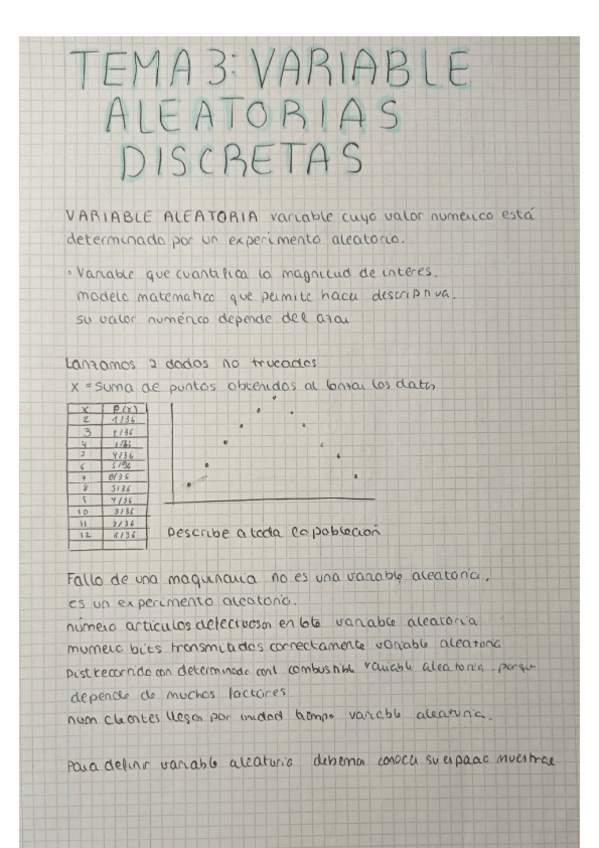 TEMA 3: VARIABLE
ALEATORIAS
DISCRETAS
VARIABLE ALEATORIA variable cuyo valor numerico está
determinado por un experimento aleatorio.
· Variable que cuantifica la magnitud de interes.
modelo matematico que permite hacer descriptiva.
su valor numérico depende del azar
Lanzamos 2 dados no trucados
X = Suma de puntos obtenidos al lanzar los datos
X P(x)
2 1/36
3 2/36
4 3/36
5 4/36
6 5/36
7 6/36
8 5/36
9 4/36
10 3/36
11 2/36
12 1/36
Describe a toda la población
Fallo de una maquinaria no es una variable aleatoria.
es un experimento aleatorio.
número articulos defectuosos en lote variable aleatoria
numero bits transmitados correctamente variable aleatoria
Dist recorrido con determinada cant combustible variable aleatoria porque
depende de muchos factores
num clientes llegan por unidad tiempo variable aleatoria.
Para definir variable aleatoria debemos conocer su espacio muestral